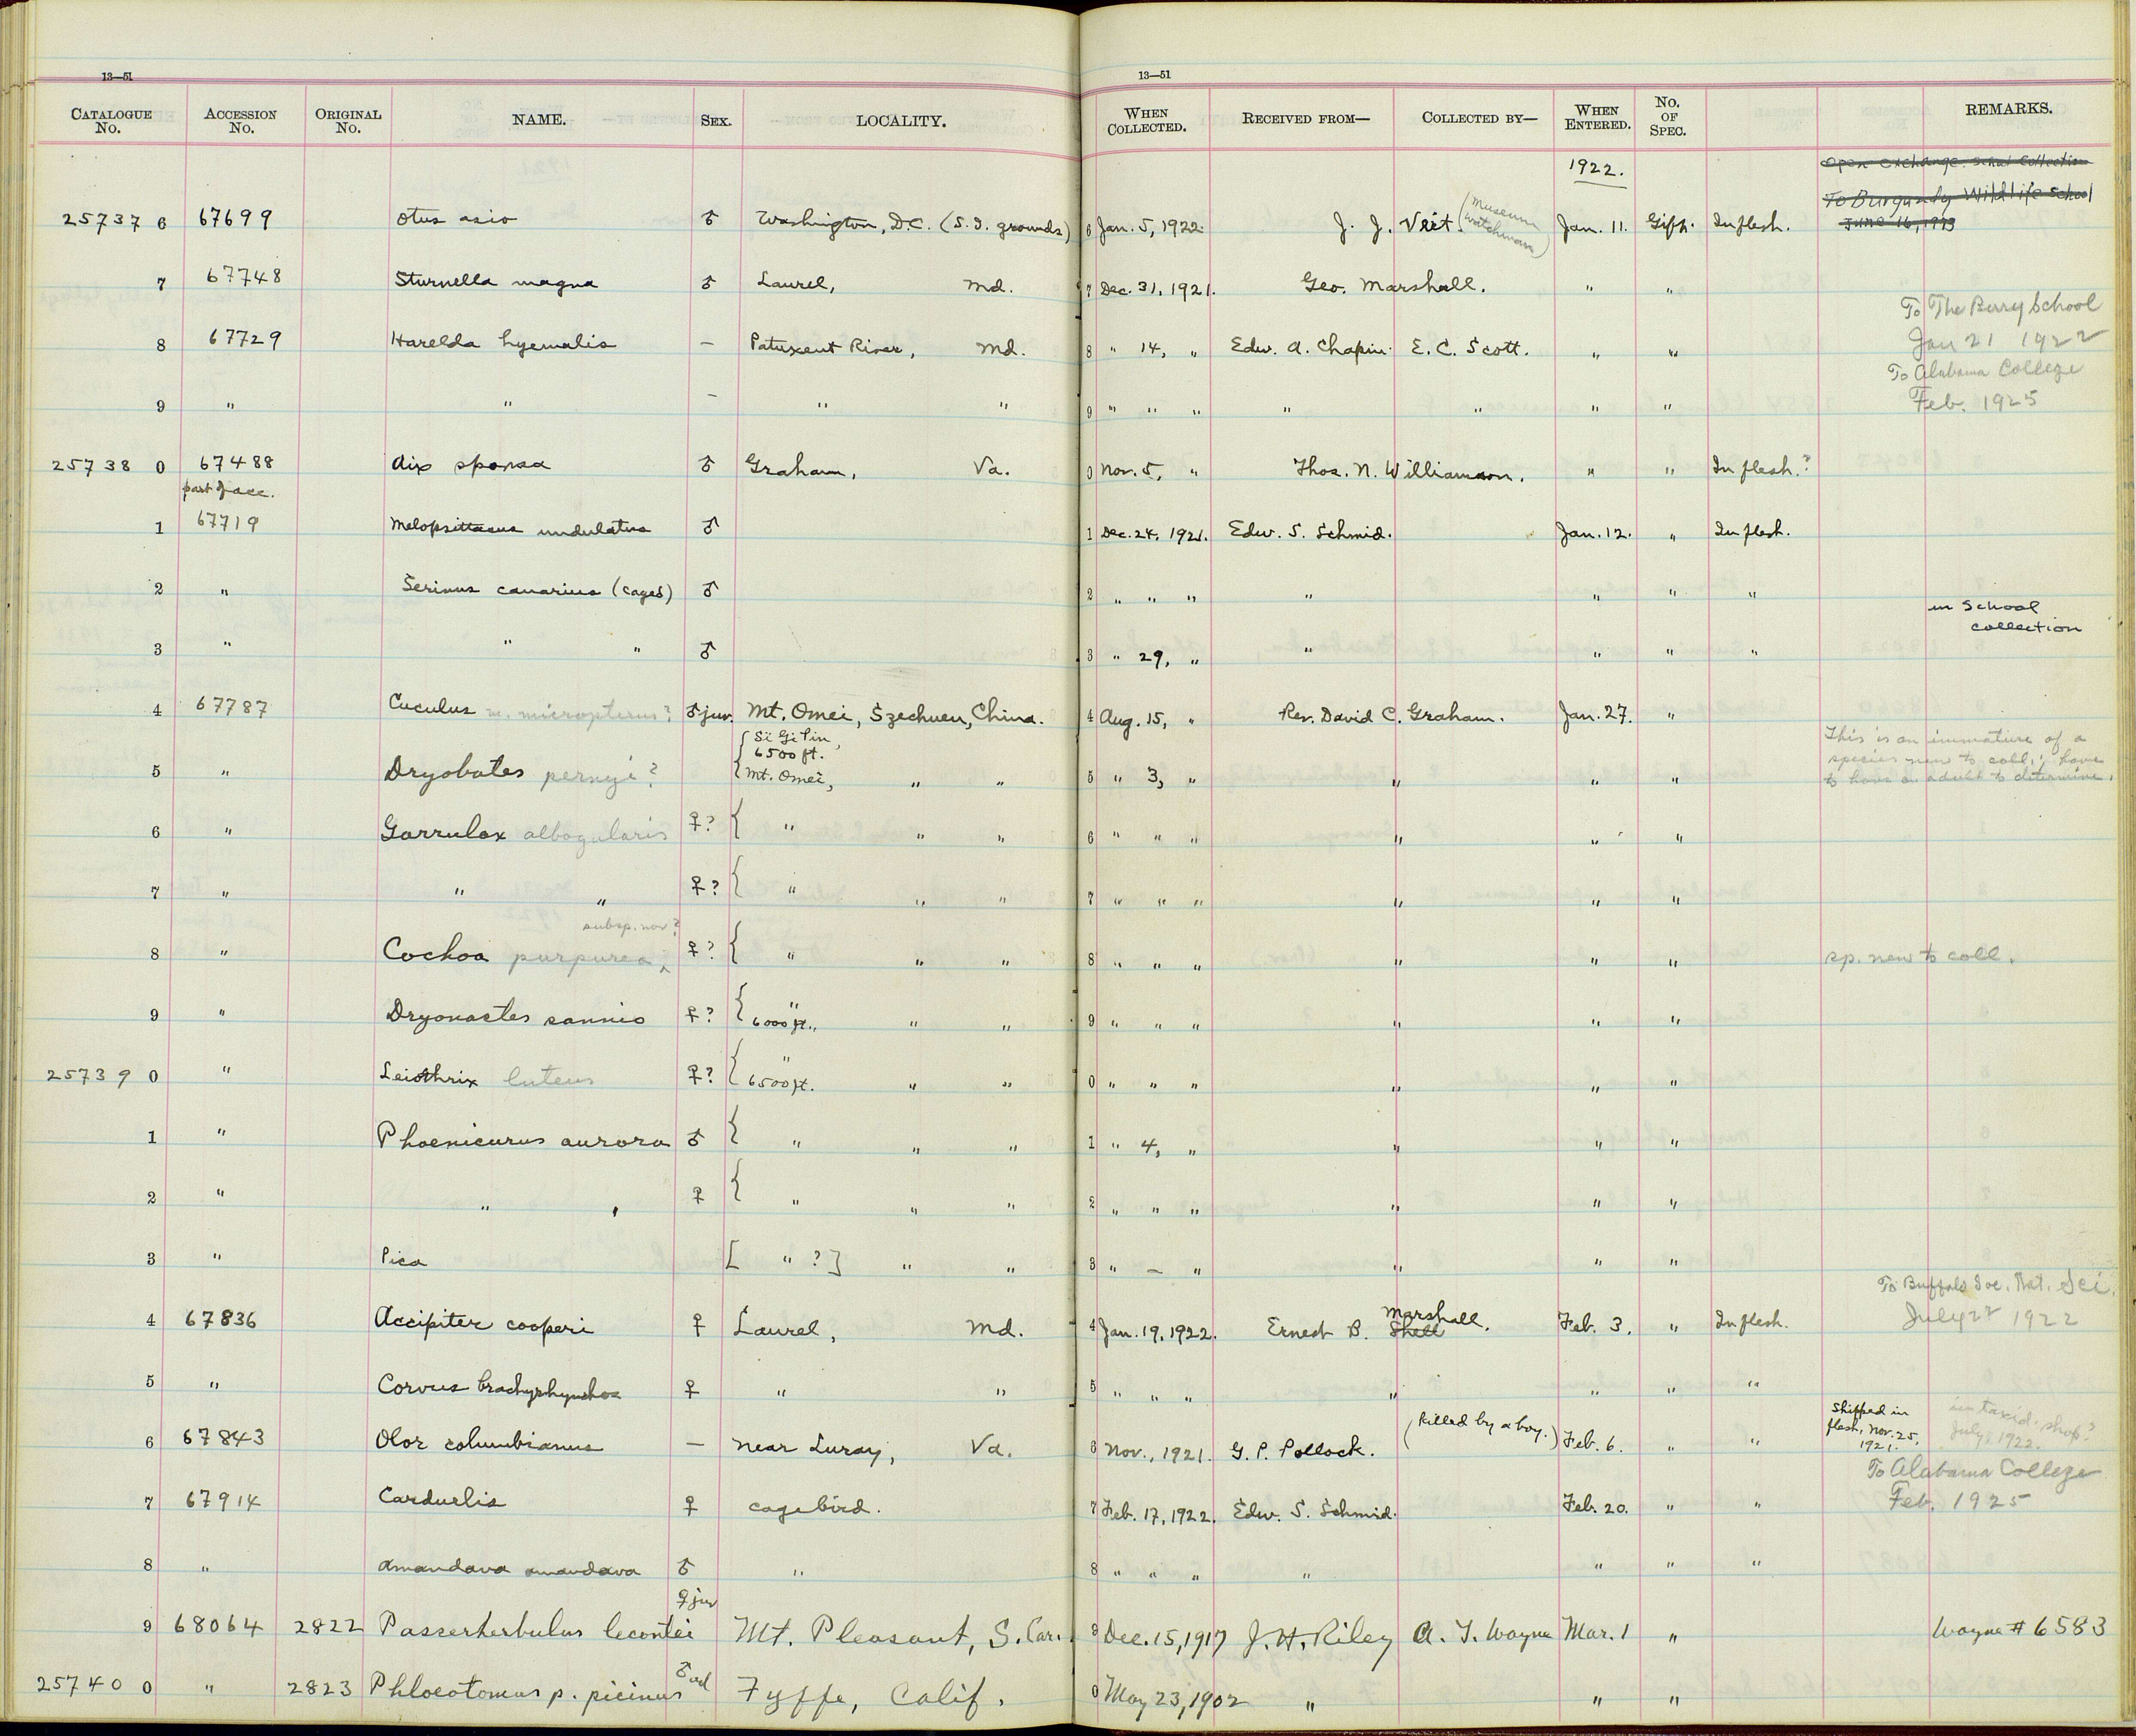 13—51
13—51
CATALOGUE No. ACCESSION No. ORIGINAL No. NAME. SEX. LOCALITY. WHEN COLLECTED. RECEIVED FROM— COLLECTED BY— WHEN ENTERED. No. OF SPEC. REMARKS.
1922. Open exchange. School Collection
To Burgundy Wildlife School
25737 6 67699 Otus asio ♂ Washington, D.C. (S.I. grounds) 6 Jan. 5, 1922. J. J. Veit. (Museum watchman) Jan. 11. Gift. In flesh. June 16, 1973
7 67748 Sturnella magna ♂ Laurel, Md. 7 Dec. 31, 1921. Geo. Marshall. " "
To The Berry School
8 67729 Harelda hyemalis — Patuxent River, Md. 8 " 14, " Edw. A. Chapin. E. C. Scott. " " Jan 21 1922
To Alabama College
9 " " — " " 9 " " " " " " " Feb. 1925
25738 0 67488 Aix sponsa ♂ Graham, Va. 0 Nov. 5, " Thos. N. Williamson. " " In flesh.?
part of acc.
1 67719 Melopsittacus undulatus ♂ 1 Dec. 24, 1921. Edw. S. Schmid. Jan. 12. " In flesh.
2 " Serinus canarius (caged) ♂ 2 " " " " " " "
in School
collection
3 " " " ♂ 3 " 29, " " " " "
4 67787 Cuculus m. micropterus? ♂ juv. Mt. Omei, Szechuen, China. 4 Aug. 15, " Rev. David C. Graham. Jan. 27. "
Si Gi Pin,
6500 ft.
This is an immature of a
species new to coll.; have
to have an adult to determine.
5 " Dryobates pernyi? Mt. Omei, " " 5 " 3, " " " "
6 " Garrulax albogularis ♀? { " " " 6 " " " " " "
7 " " " ♀? { " " " 7 " " " " " "
subsp. nov?
8 " Cochoa purpurea ^ ♀? { " " " 8 " " " " " " sp. new to coll.
9 " Dryonastes sannio ♀? { " 6000 ft., " " 9 " " " " " "
25739 0 " Leiothrix luteus ♀? { " 6500 ft. " " 0 " " " " " "
1 " Phoenicurus aurora ♂ { " " " 1 " 4, " " " "
2 " " " ♀ { " " " 2 " " " " " "
3 " Pica [ " ? ] " " 3 " — " " " "
To Buffalo Soc. Nat. Sci.
4 67836 Accipiter cooperi ♀ Laurel, Md. 4 Jan. 19, 1922. Ernest B. Shell Marshall. Feb. 3. " In flesh. July 22 1922
5 " Corvus brachyrhynchos ♀ " " 5 " " " " " " "
6 67843 Olor columbianus — near Luray, Va. 6 Nov., 1921. G. P. Pollock. (killed by a boy.) Feb. 6. " " Shipped in flesh, Nov. 25, 1921. in taxid. shop? July, 1922.
To Alabama College
7 67914 Carduelis ♀ cage bird. 7 Feb. 17, 1922. Edw. S. Schmid. Feb. 20. " " Feb. 1925
8 " Amandava amandava ♂ " 8 " " " " " " "
9 68064 2822 Passerherbulus lecontei ♀ juv Mt. Pleasant, S. Car. 9 Dec. 15, 1917 J. H. Riley A. T. Wayne Mar. 1 " Wayne # 6583
25740 0 " 2823 Phloeotomus p. picinus ♂ ad Fyffe, Calif. 0 May 23, 1902 " " "